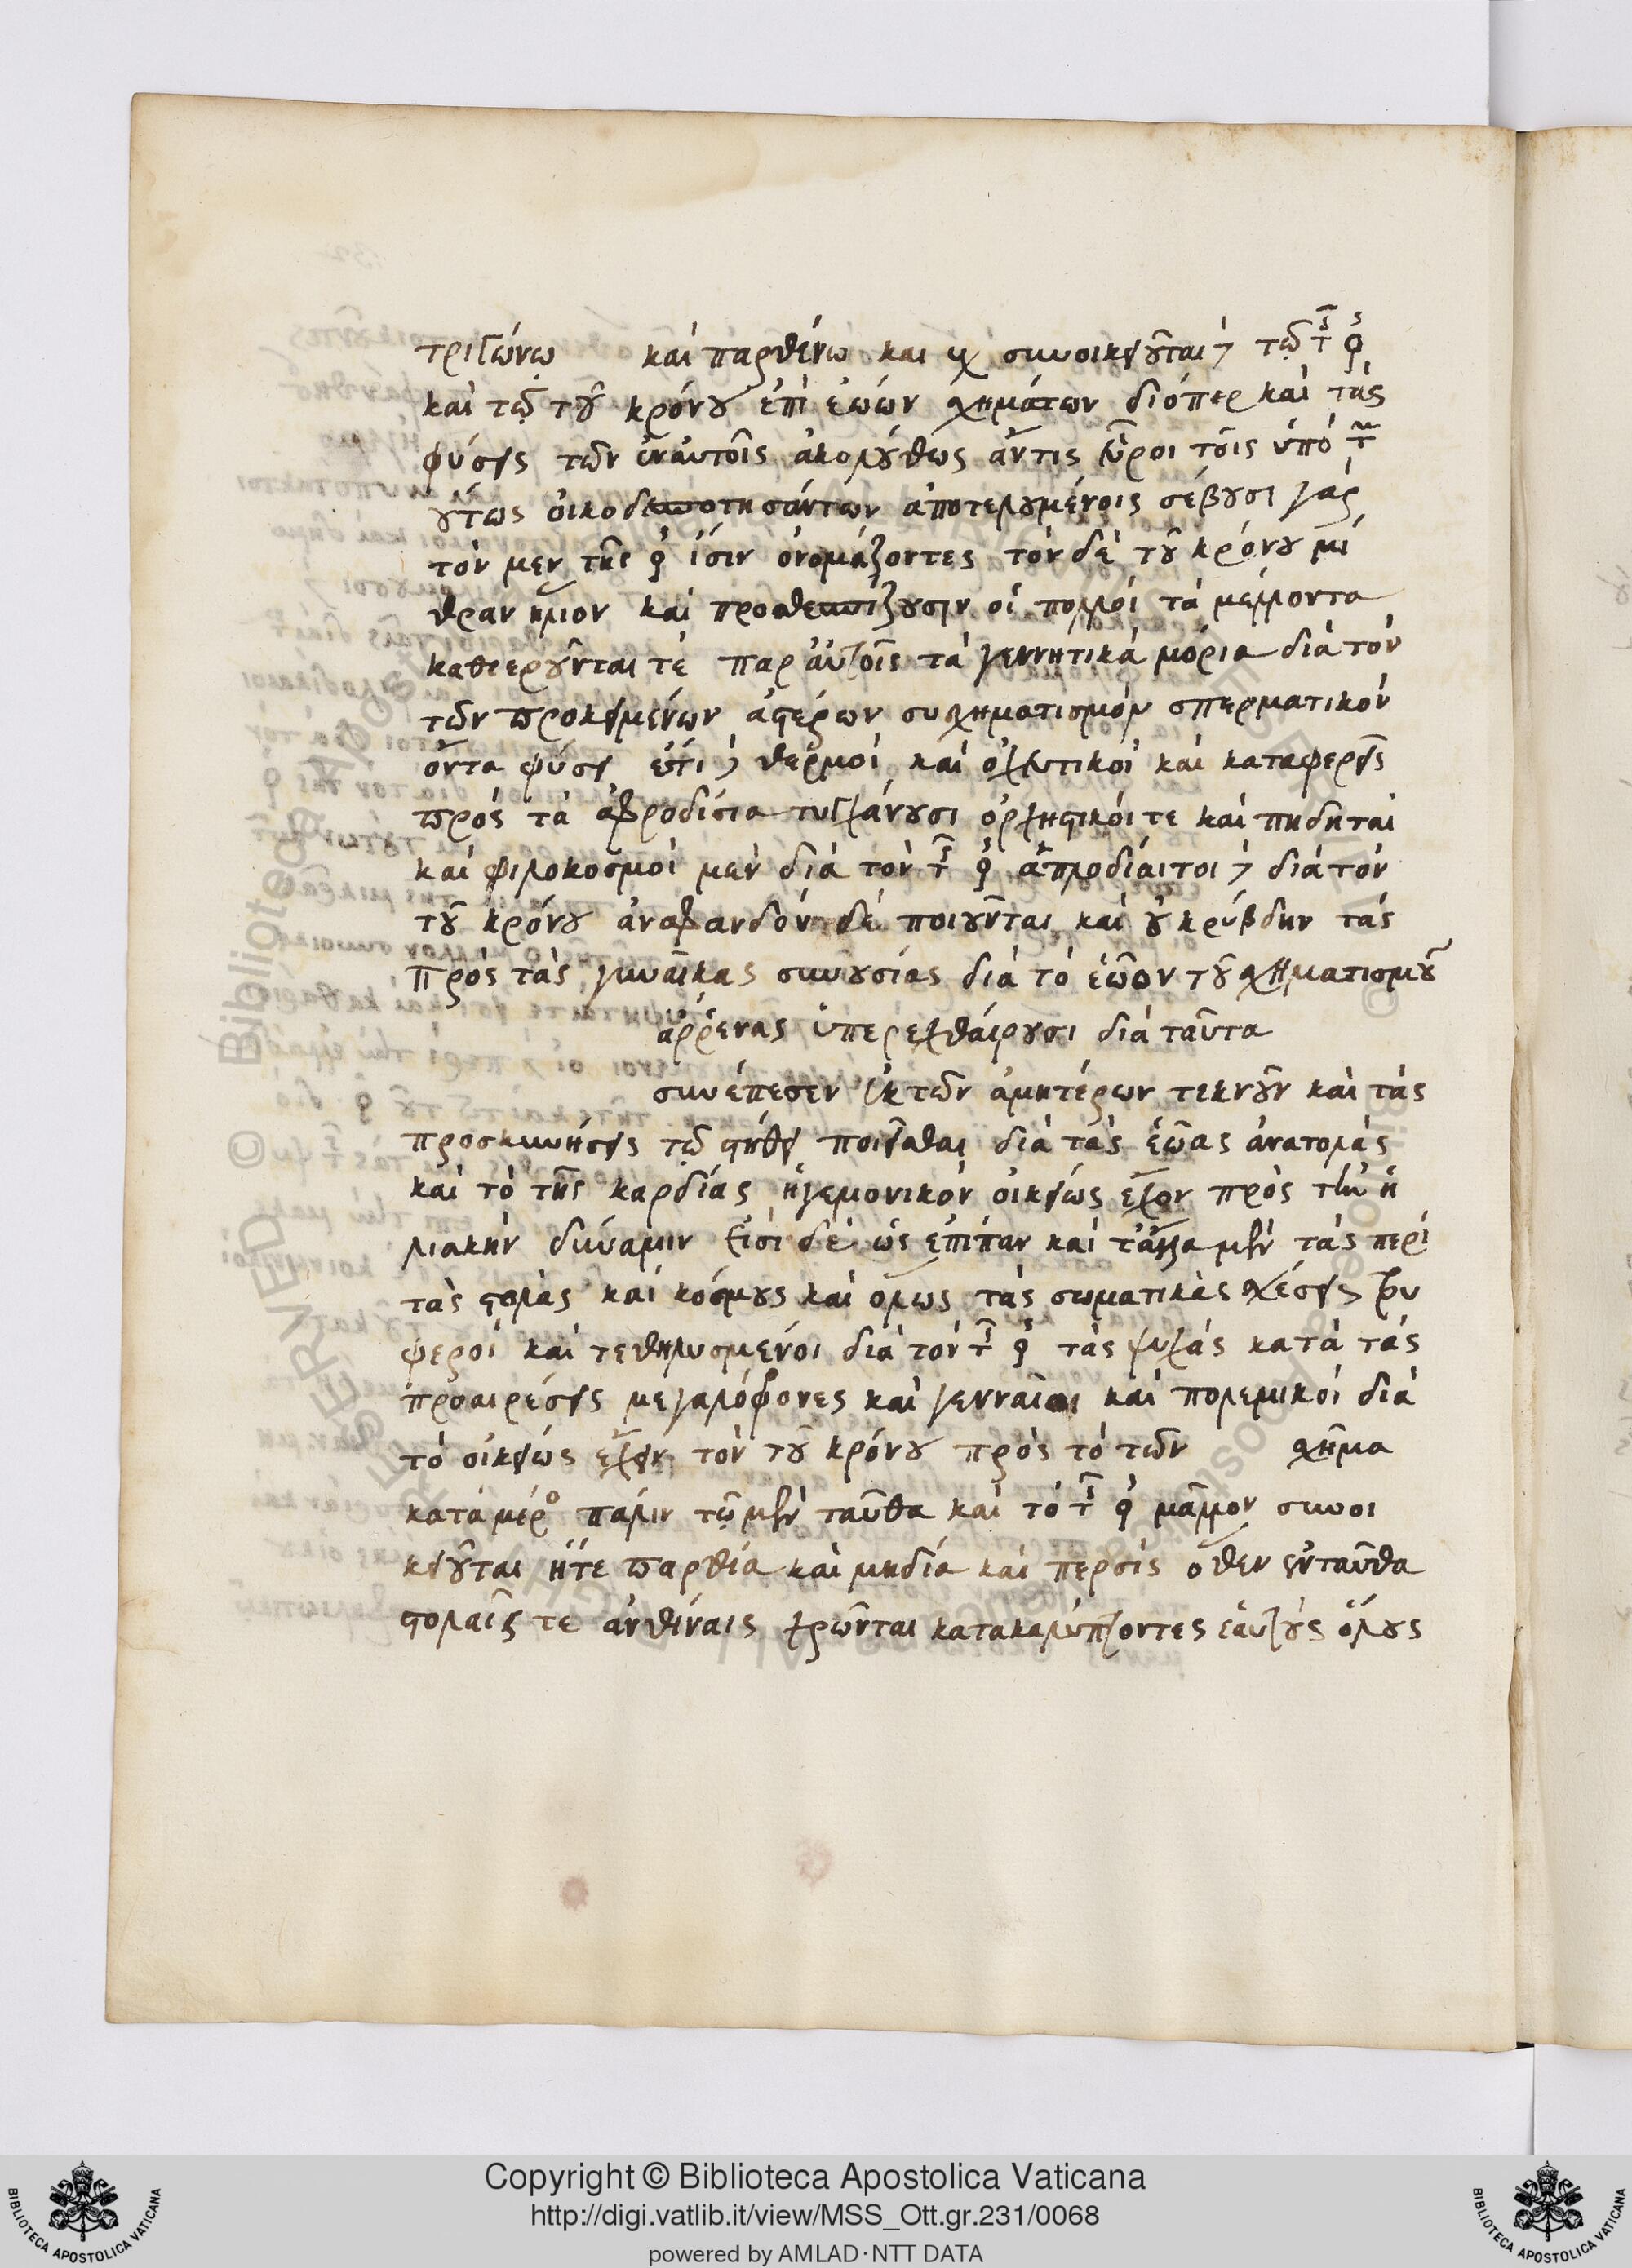 τριγώνω καὶ παρθένω και ♑ συνοικειοῦται δὲ τῶ τῆς ♀
καὶ τῶ τοῦ κρόνου ἐπὶ ἑώων σχημάτων διόπερ καὶ τὰς
φύσεις τῶν ἐν αὐτοῖς ἀκολούθως ἄν τις εὕροι τοῖς ὑπὸ τῶν
οὕτως οἰκοδεσποτησάντων ἀποτελουμένοις σέβουσι γὰρ
τὸν μεν τῆς ♀ ἴσιν ὀνομάζοντες τὸν δὲ τοῦ κρόνου μί
θραν ήλιον καὶ προθεσπίζουσιν οἱ πολλοὶ τὰ μέλλοντα
καθιεροῦνται τὲ παρ αὐτοῖς τὰ γεννητικὰ μόρια διὰ τὸν
τῶν προκειμένων ἀστέρων συσχηματισμὸν σπερματικὸν
ὄντα φύσει ἔτι δὲ θερμοὶ καὶ ὀχευτικοὶ καὶ καταφερεῖς
πρὸς τὰ ἀφροδίσια τυγχάνουσι ὀρχηστικοί τε καὶ πηδηταὶ
καὶ φιλοκοσμοὶ μὲν διὰ τὸν τῆς ♀ ἁπλοδίαιτοι δὲ διὰ τὸν
τοῦ κρόνου ἀναφανδὸν δὲ ποιοῦνται καὶ οὐ κρύβδην τὰς
πρὸς τὰς γυναῖκας συνουσίας διὰ τὸ ἑῶον τοῦ σχηματισμοῦ
ἀρρένας ὑπερεχθαίρουσι διὰ ταῦτα
συνέπεσεν ἐκ τῶν ἀμητέρων τεκνοῦν καὶ τὰς
προσκυνήσεις τῶ στήθει ποιεῖσθαι διὰ τὰς ἑῶας ἀνατολὰς
καὶ τὸ τῆς καρδίας ἡγεμονικὸν οἰκείως ἔχον πρὸς τὴν ἡ
λιακὴν δύναμιν εἰσὶ δὲ ὡς ἐπίπαν καὶ τἄλλα μὲν τὰς περὶ
τὰς στολὰς καὶ κόσμους καὶ ολως τὰς σωματικὰς σχέσεις τρυ
φεροὶ καὶ τεθηλυσμένοι διὰ τὸν τῆς ♀ τὰς ψυχὰς κατὰ τὰς
προαιρέσεις μεγαλόφρονες καὶ γενναῖοι καὶ πολεμικοὶ διὰ
τὸ οἰκείως ἔχειν τὸν τοῦ κρόνου πρὸς τὸ τῶν σχῆμα
κατὰ μέρος πάλιν τῶ μὲν ταῦθα καὶ τὸ τῆς ♀ μᾶλλον συνοι
κειοῦται ἥτε παρθία καὶ μηδία καὶ περσίς οθεν ἐνταῦθα
στολαῖς τε ἀνθίναις χρῶνται κατακαλύπτοντες ἑαυτοὺς ὅλους
Copyright © Biblioteca Apostolica Vaticana
http://digi.vatlib.it/view/MSS_Ott.gr.231/0068
powered by AMLAD·NTT DATA
BIBLIOTECA APOSTOLICA VATICANA
BIBLIOTECA APOSTOLICA VATICANA